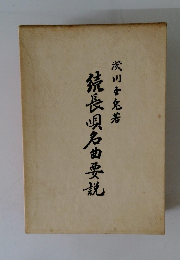 浅川玉兎著
続長唄名曲要説